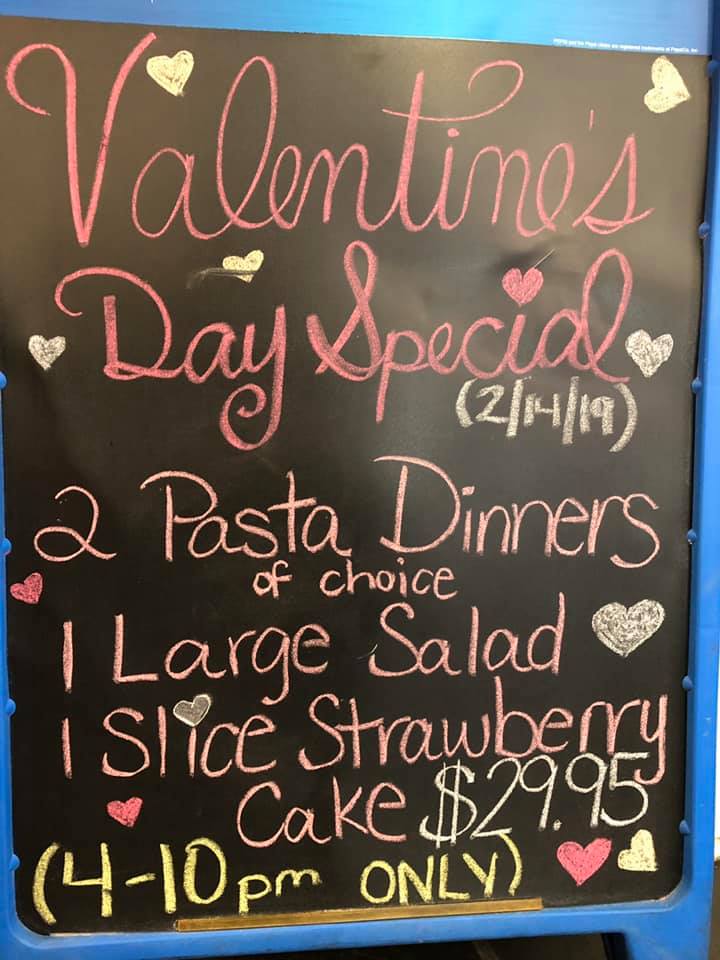 Valentine's
Day Special
(2/14/19)
2 Pasta Dinners
of choice
1 Large Salad
1 Slice Strawberry
Cake $29.95
(4-10pm ONLY)